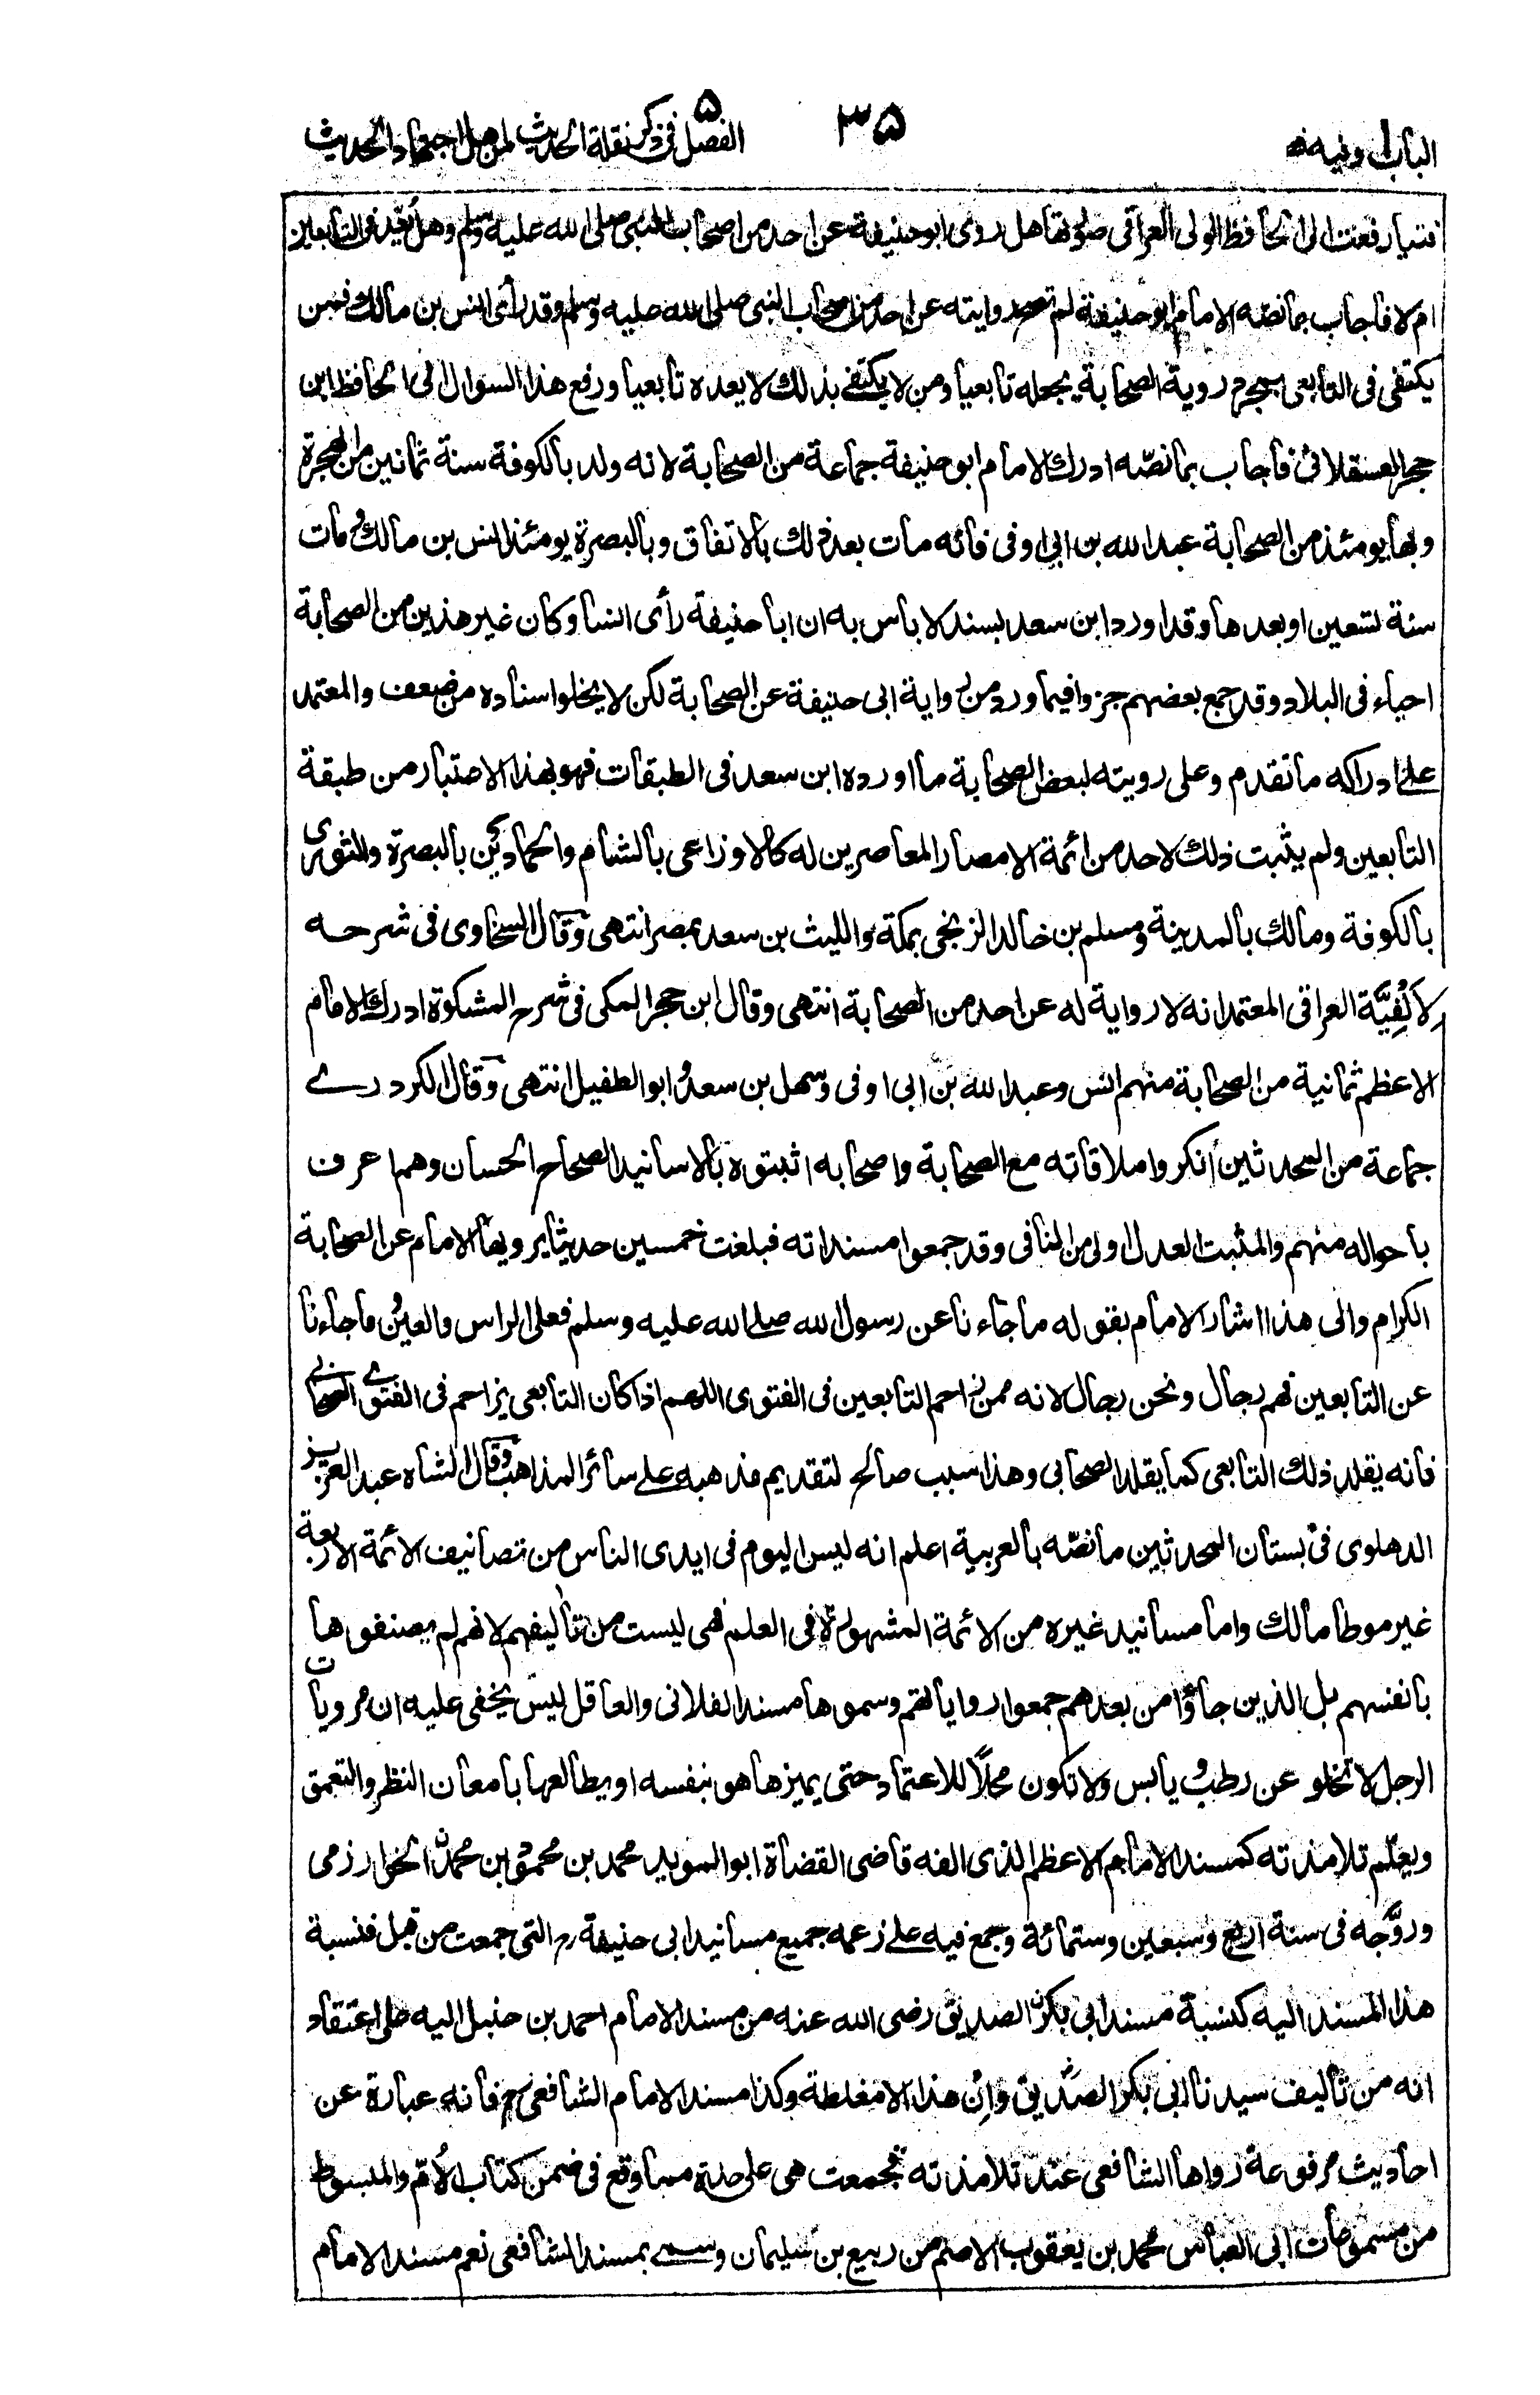 الباب وفيه
٣۵
الفصل ۵ فی ذكر نقلة الحديث لمن هل اجتهاد الحديث
فتيا رفعت الى الحافظ الولى العراقى صورتها هل روى ابو حنيفة عن احد من اصحاب النبى صلى الله عليه وسلم وهل يعد فى التابعين
ام لا فاجاب بما نصّه الامام ابو حنيفة لم تصح روايته عن احد من اصحاب النبى صلى الله عليه وسلم وقد رأى انس بن مالك فمن
يكتفى فى التابعى بمجرم روية الصحابة يجعله تابعيا ومن لا يكتفے بذلك لا يعده تابعيا ورفع هذا السوال الى الحافظ ابن
حجر العسقلانى فاجاب بما نصّه ادرك الامام ابو حنيفة جماعة من الصحابة لانه ولد بالكوفة سنة ثمانين من الهجرة
وبها يومئذ من الصحابة عبد الله بن ابى اوفى فانه مات بعد ذلك بالاتفاق وبالبصرة يومئذ انس بن مالك ومات
سنة تسعين او بعدها وقد اورد ابن سعد بسند لا باس به ان ابا حنيفة رأى انسا وكان غير هذين من الصحابة
احياء فى البلاد وقد جمع بعضهم جزوا فيما ورد من رواية ابى حنيفة عن الصحابة لكن لا يخلوا سناده من ضعف والمعتمد
علے ادراكه ما تقدم وعلى رويته لبعض الصحابة ما اورده ابن سعد فى الطبقات فهو بهذا الاعتبار من طبقة
التابعين ولم يثبت ذلك لاحد من ائمة الامصار المعاصرين له كالاوزاعى بالشام والحمادين بالبصرة والثورى
بالكوفة ومالك بالمدينة ومسلم بن خالد الزنجى بمكة والليث بن سعد بمصر انتهى وقال السخاوى فى شرحه
لِاَلْفِيَّة العراقى المعتمد انه لا رواية له عن احد من الصحابة انتهى وقال ابن حجر المكى فى شرح المشكوة ادرك الامام
الاعظم ثمانية من الصحابة منهم انس وعبد الله بن ابى اوفى وسهل بن سعد وابو الطفيل انتهى وقال الكردرے
جماعة من المحدثين انكروا ملاقاته مع الصحابة واصحابه اثبتوه بالاسانيد الصحاح الحسان وهم اعرف
باحواله منهم والمثبت العدل اولى من النافى وقد جمعوا مسنداته فبلغت خمسين حديثا يرويها الامام عن الصحابة
الكرام والى هذا اشار الامام بقوله ما جاءنا عن رسول الله صلے الله عليه وسلم فعلى الراس والعين وما جاءنا
عن التابعين فهم رجال ونحن رجال لانه ممن زاحم التابعين فى الفتوى اللهم اذا كان التابعى يزاحم فى الفتوے الصحابى
فانه يقلد ذلك التابعى كما يقلد الصحابى وهذا سبب صالح لتقديم مذهبه علے سائر المذاهب وقال الشاه عبد العزيز
الدهلوى فى بستان المحدثين ما نصّه بالعربية اعلم انه ليس اليوم فى ايدى الناس من تصانيف الائمة الاربعة
غير موطا مالك واما مسانيد غيره من الائمة المشهورة فى العلم فهى ليست من تأليفهم لانهم لم يصنفوها
بانفسهم بل الذين جاؤا من بعدهم جمعوا رواياتهم وسموها مسند الفلانى والعاقل ليس يخفى عليه ان مرويات
الرجل لا تخلو عن رطب ويابس ولا تكون محلاً للاعتماد حتى يميزها هو بنفسه او يطالعها بامعان النظر والتعمق
ويعلّم تلامذته كمسند الامام الاعظم الذى الفه قاضى القضاة ابو المويد محمد بن محمود ابن محمد الخوارزمى
وروّجه فى سنة اربع وسبعين وستمائة وجمع فيه علے زعمه جميع مسانيد ابى حنيفة رح التى جمعت من قبل فنسبة
هذا المسند اليه كنسبة مسند ابى بكر الصديق رضى الله عنه من مسند الامام احمد بن حنبل اليه على اعتقاد
انه من تأليف سيدنا ابى بكر الصدّيق وان هذا الامغلطة وكذا مسند الامام الشافعى رح فانه عبارة عن
احاديث مرفوعة رواها الشافعى عند تلامذته فجمعت هى على حدة مما وقع فى ضمن كتاب الأم والمبسوط
من مسموعات ابى العباس محمد بن يعقوب الاصم من ربيع بن سليمان وسمے بمسند الشافعى نعم مسند الامام